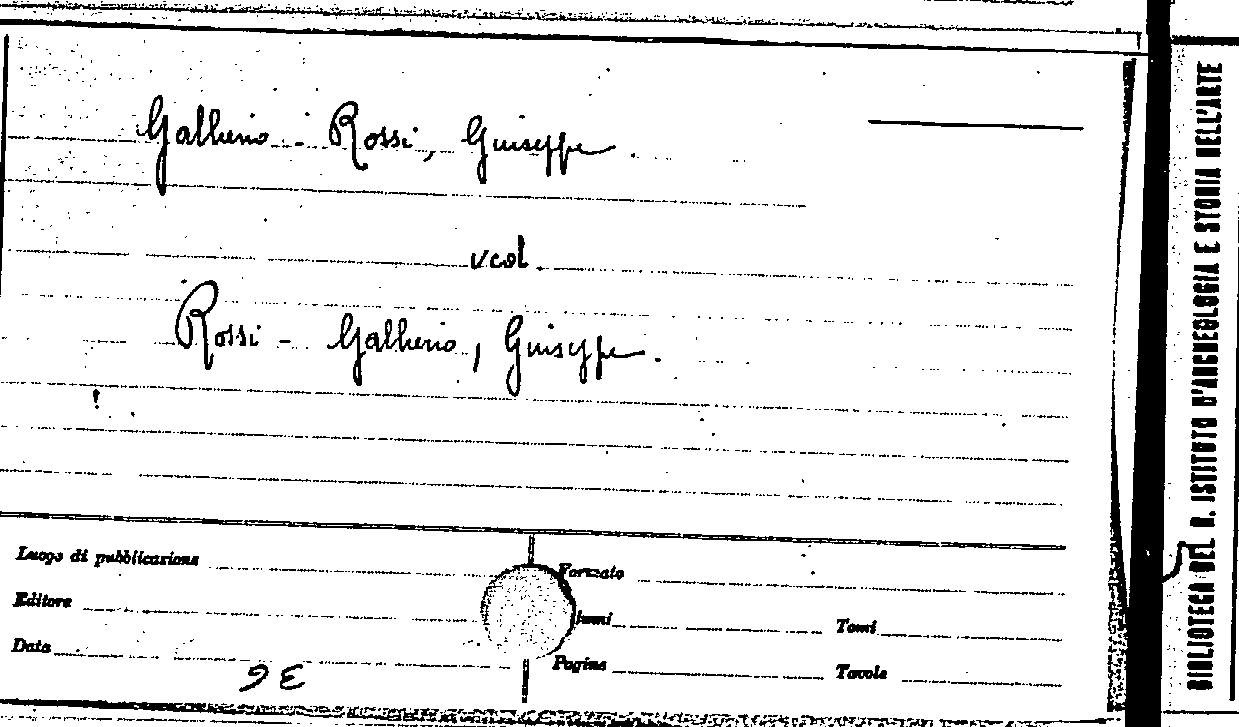 Gallieno - Rossi, Giuseppe.
ved.
Rossi - Gallieno, Giuseppe.
Luogo di pubblicazione
Formato
Editore
Tomi
Data
Pagine
Tavole
36
BIBLIOTECA DEL R. ISTITUTO D'ARCHEOLOGIA E STORIA DELL'ARTE